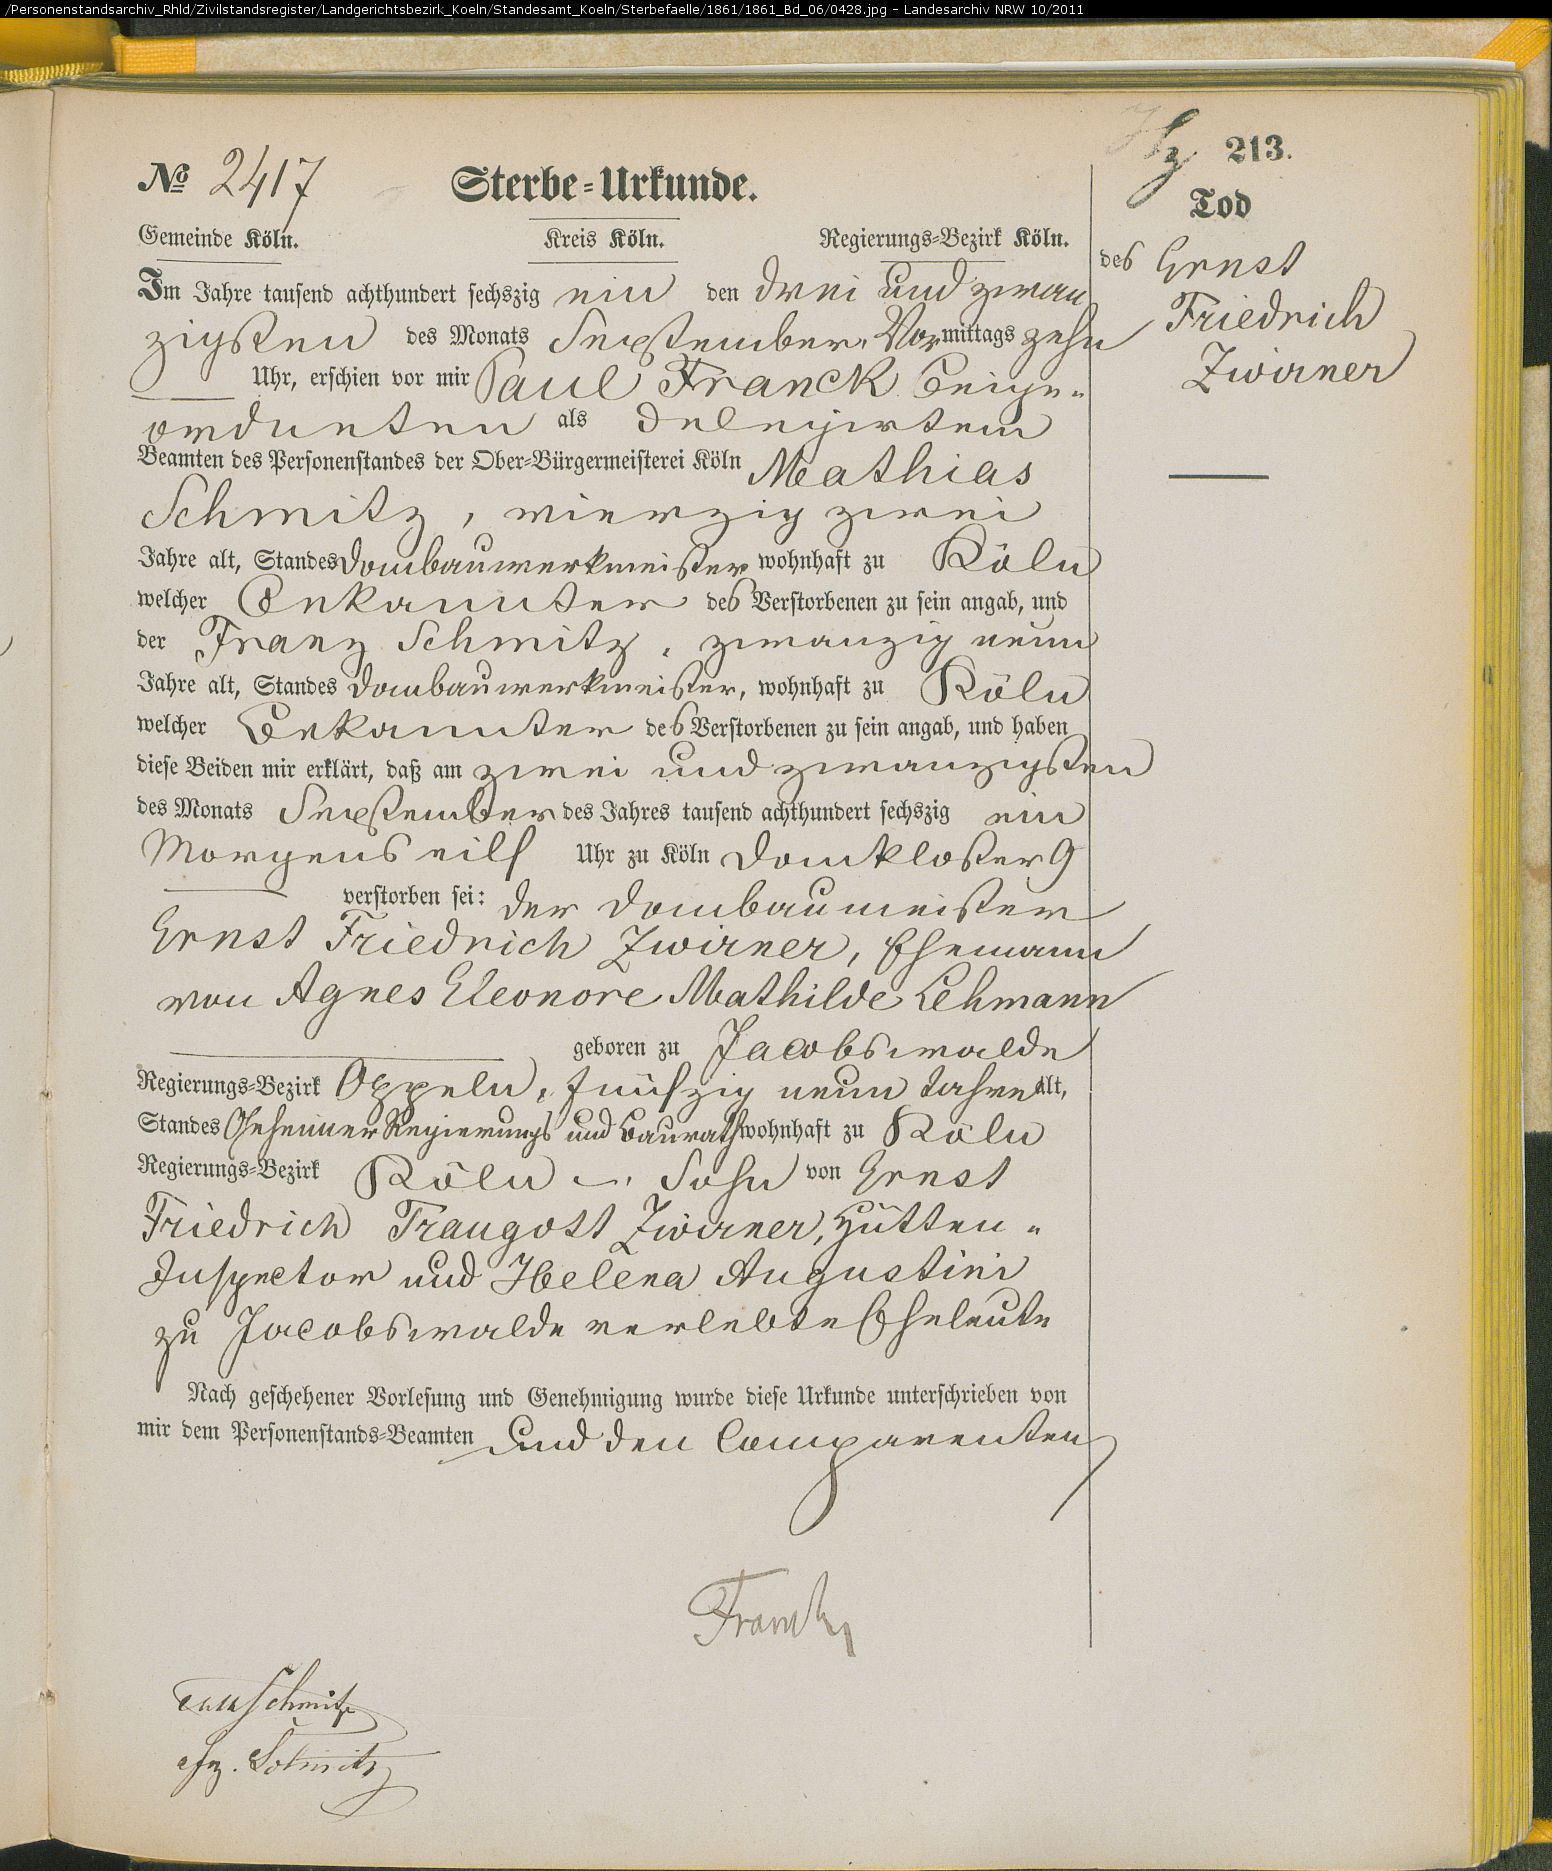 /Personenstandsarchiv_Rhld/Zivilstandsregister/Landgerichtsbezirk_Koeln/Standesamt_Koeln/Sterbefaelle/1861/1861_Bd_06/0428.jpg - Landesarchiv NRW 10/2011
213.
No 2417
Sterbe-Urkunde.
Gemeinde Köln. Kreis Köln. Regierungs-Bezirk Köln.
Im Jahre tausend achthundert sechszig ein den drei und zwan
zigsten des Monats September, Vormittags zehn
Uhr, erschien vor mir Paul Franck Beige-
ordneten als delegirtem
Beamten des Personenstandes der Ober-Bürgermeisterei Köln Mathias
Schmitz, vierzig zwei
Jahre alt, Standes Dombauwerkmeister wohnhaft zu Köln
welcher Bekannter des Verstorbenen zu sein angab, und
der Franz Schmitz, zwanzig neun
Jahre alt, Standes Dombauwerkmeister, wohnhaft zu Köln
welcher Bekannter des Verstorbenen zu sein angab, und haben
diese Beiden mir erklärt, daß am zwei und zwanzigsten
des Monats September des Jahres tausend achthundert sechszig ein
Morgens eilf Uhr zu Köln Domkloster 9
verstorben sei: der Dombaumeister
Ernst Friedrich Zwirner, Ehemann
von Agnes Eleonore Mathilde Lehmann
geboren zu Jacobswalde
Regierungs-Bezirk Oppeln, fünfzig neun Jahre alt,
Standes Geheimer Regierungs und Baurath wohnhaft zu Köln
Regierungs-Bezirk Köln, Sohn von Ernst
Friedrich Traugott Zwirner, Hütten-
Inspector und Helena Augustini
zu Jacobswalde verlebte Eheleute
Nach geschehener Vorlesung und Genehmigung wurde diese Urkunde unterschrieben von
mir dem Personenstands-Beamten und den Comparenten
Franck
Schmitz
Frz. Schmitz
Tod
des Ernst
Friedrich
Zwirner